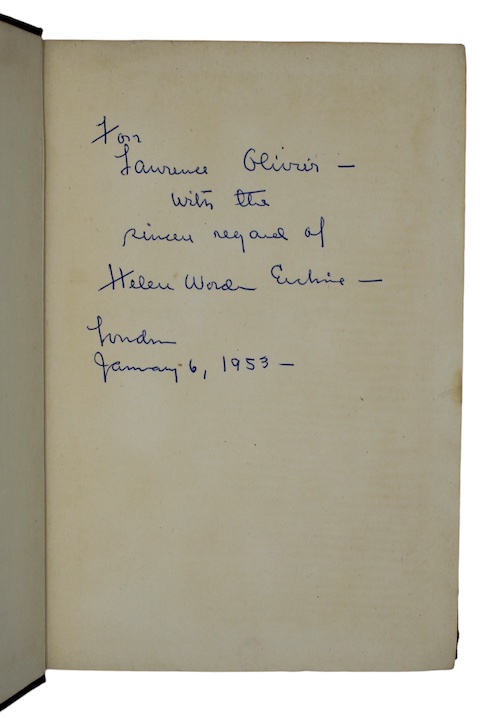 For
Lawrence Olivier –
with the
sincere regard of
Helen Worden Erskine –
London
January 6, 1953 –